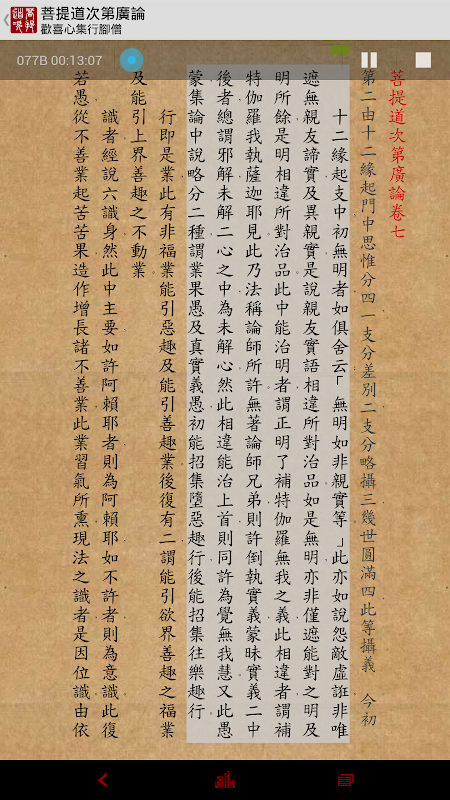 菩提道次第廣論
歡喜心集行腳僧
077B 00:13:07
菩提道次第廣論卷七
第二由十二緣起門中思惟分四一支分差別二支分略攝三幾世圓滿四此等攝義 今初
十二緣起支中初無明者如俱舍云「無明如非親實等」此亦如說怨敵虛誑非唯
遮無親友諦實及異親實是說親友實語相違所對治品如是無明亦非僅遮能對之明及
明所餘是明相違所對治品此中能治明者謂正明了補特伽羅無我之義此相違者謂補
特伽羅我執薩迦耶見此乃法稱論師所許無著論師兄弟則許倒執實義蒙昧實義二中
後者總謂邪解未解二心之中為未解心然此相違能治上首則同許為覺無我慧又此愚
蒙集論中說略分二種謂業果愚及真實義愚初能招集墮惡趣行後能招集往樂趣行
行即是業此有非福業能引惡趣及能引善趣業後復有二謂能引欲界善趣之福業
及能引上界善趣之不動業
識者經說六識身然此中主要如許阿賴耶者則為阿賴耶如不許者則為意識此復
若愚從不善業起苦苦果造作增長諸不善業此業習氣所熏現法之識者是因位識由依